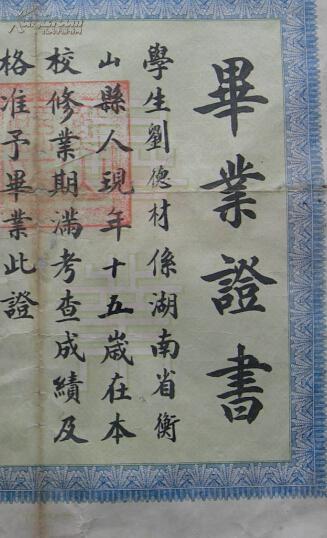 畢業證書
學生劉德材係湖南省衡
山縣人現年十五歲在本
校修業期滿考查成績及
格准予畢業此證